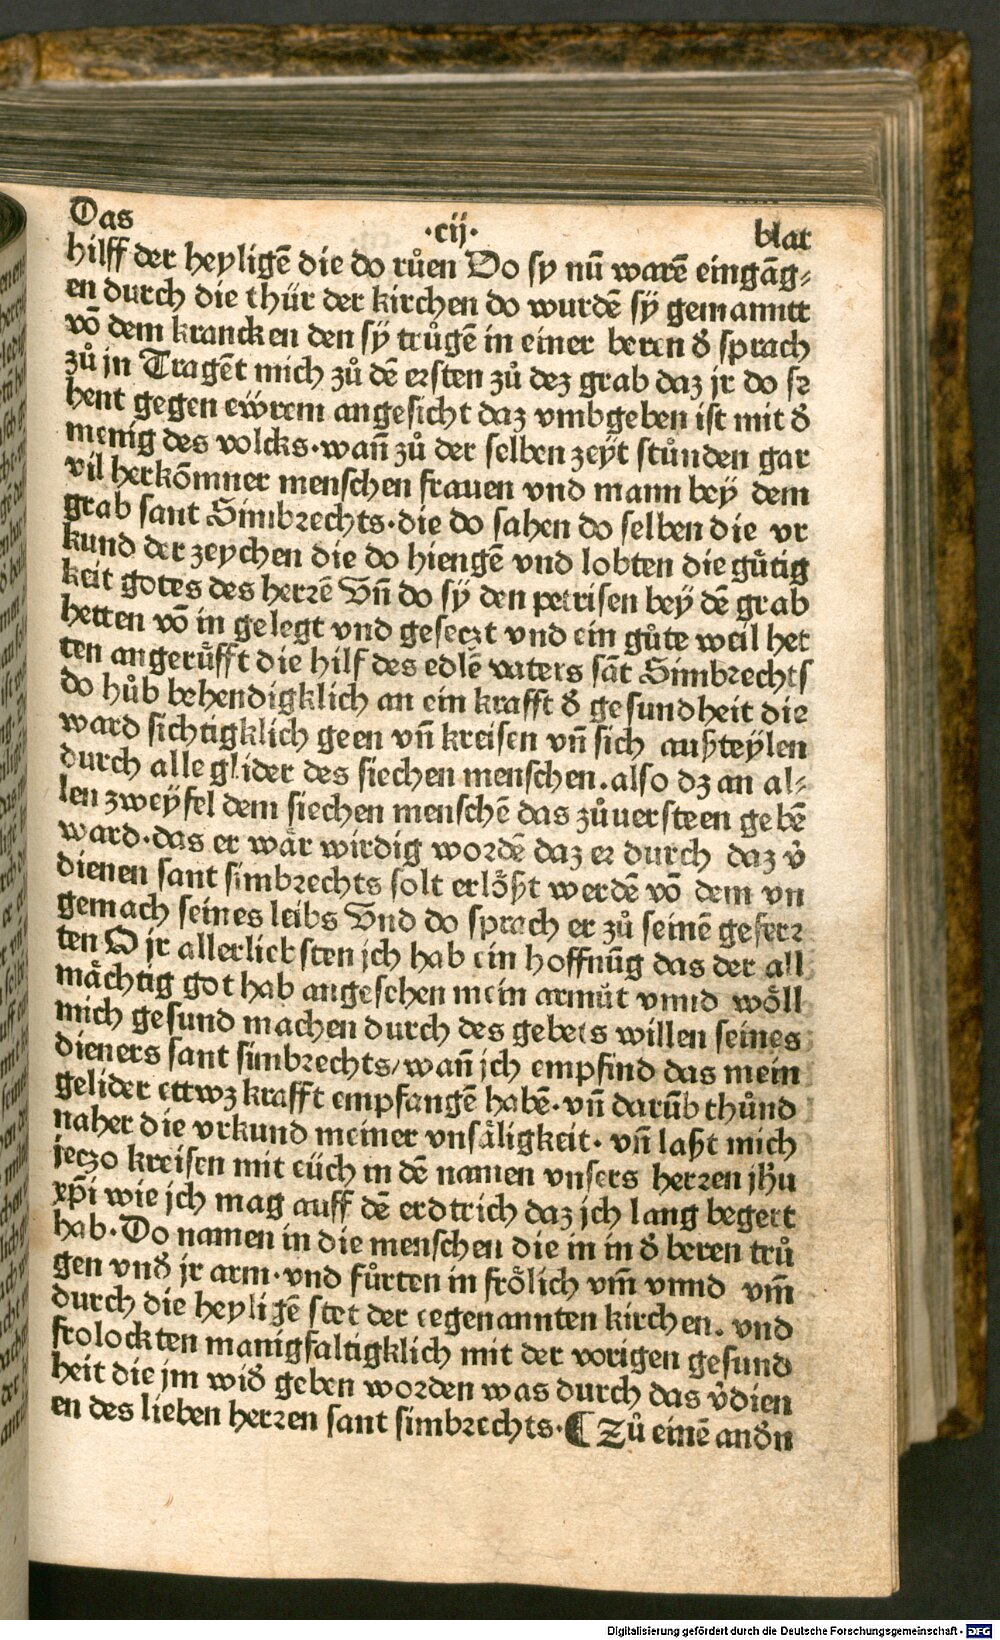 Das ·cij· blat
hilff der heyligē die do růen Do sy nū warē eingāg⸗
en durch die thür der kirchen do wurdē sÿ gemanntt
vō dem krancken den sÿ trůgē in einer beren đ sprach
zů jn Tragēt mich zů dē ersten zů dez grab daz jr do se
hent gegen eẅrem angesicht daz vmbgeben ist mit đ
menig des volcks·wañ zů der selben zeÿt stůnden gar
vil herkōmner menschen frauen vnd mann beÿ dem
grab sant Simbrechts·die do sahen do selben die vr
kund der zeychen die do hiengē vnd lobten die gütig
keit gotes des herrē Vñ do sÿ den petrisen bey dē grab
hetten vō in gelegt vnd geseczt vnd ein gůte weil het
ten angerůfft die hilf des edlē vaters sāt Simbrechts
do hůb behendigklich an ein krafft đ gesundheit die
ward sichtigklich geen vñ kreisen vñ sich außteÿlen
durch alle glider des siechen menschen.also dz an al⸗
len zweÿfel dem siechen menschē das zůuersteen gebē
ward·das er wår wirdig wordē daz er durch daz v̄
dienen sant simbrechts solt erlößt werdē vō dem vn
gemach seines leibs Vnd do sprach er zů seinē geferr
ten O jr allerliebsten jch hab ein hoffnūg das der all
mächtig got hab angesehen mein armůt vnnd wöll
mich gesund machen durch des gebets willen seines
dieners sant simbrechts/wañ jch empfind das mein
gelider ettwz krafft empfangē habē·vñ darūb thůnd
naher die vrkund meiner vnsäligkeit· vñ laßt mich
jeczo kreisen mit eüch in dē namen vnsers herren jħu
xp̄i wie jch mag auff dē erdtrich daz jch lang begert
hab·Do namen in die menschen die in in đ beren trů
gen vnđ jr arm·vnd fůrten in frölich vm̄ vnnd vm̄
durch die heyligē stet der eegenannten kirchen. vnd
frolockten manigfaltigklich mit der vorigen gesund
heit die jm wiđ geben worden was durch das v̄dien
en des lieben herren sant simbrechts·¶ Zů einē anđn
Digitalisierung gefördert durch die Deutsche Forschungsgemeinschaft - DFG